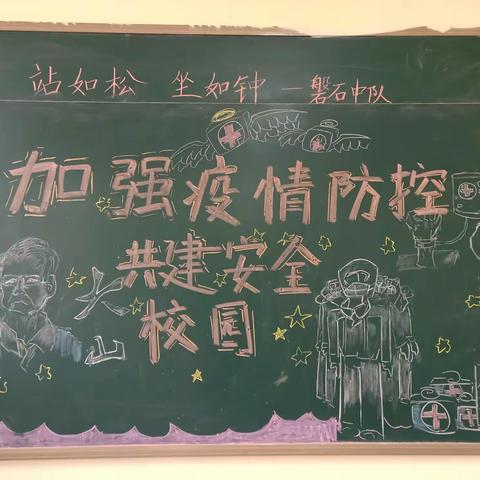 站如松 坐如钟 —磐石中队
加强疫情防控
共建安全
校园
火
山